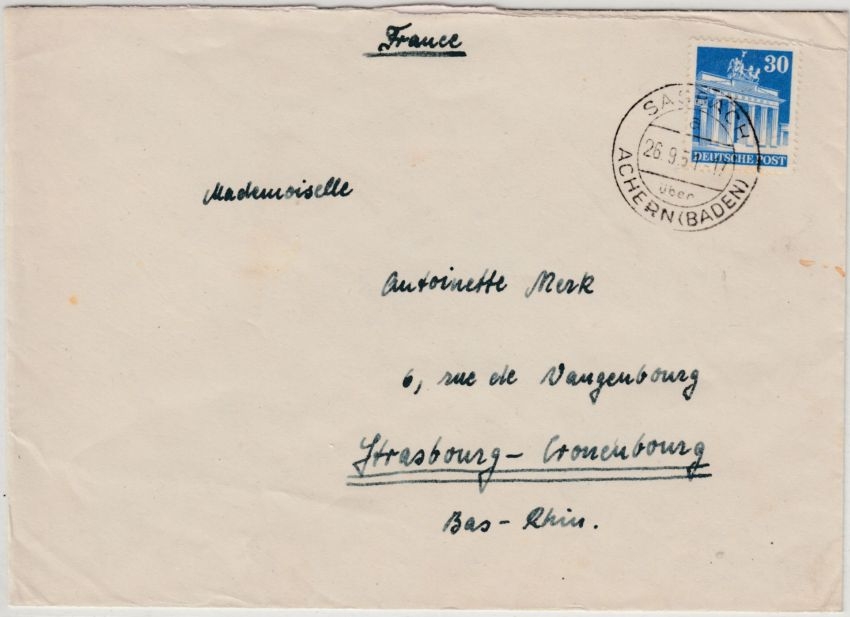 France
30
DEUTSCHE POST
SASBACH
26.9.51-17
über
ACHERN (BADEN)
Mademoiselle
Antoinette Merk
6, rue de Vangenbourg
Strasbourg - Cronenbourg
Bas - Rhin.